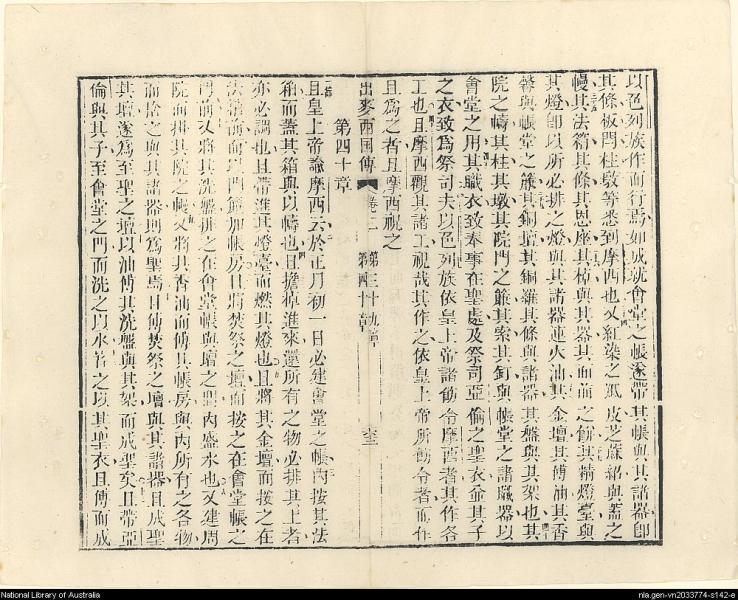 以色列族作而行焉如成就會堂之帳遂帶其帳與其諸器卽
其條板閂柱墩等悉到摩西也又紅染之羝皮芝蔴綢與蓋之
幔其法箱其條其恩座其棹與其器其面前之餅其精燈臺與
其燈卽以所必排之燈與其諸器連火油其金壇其傅油其香
馨與帳堂之簾其銅壇其銅羅其條與諸器其盤與其架也其
院之幬其柱其墩其院門之簾其索其釘與帳堂之諸器以
會堂之用其職衣致奉事在聖處及祭司亞倫之聖衣並其子
之衣致爲祭司夫以色列族依皇上帝諸飭令摩西者其作各
工也且摩西觀其諸工視哉其作之依皇上帝所飭令者而作
且爲之者且摩西祝之
出麥西國傳 卷二 第三十九章 第四十章
第四十章
且皇上帝諭摩西云於正月初一日必建會堂之帳內按其法
箱而蓋其箱與以幬也且擔棹進來還所有之物必排其上者
亦必調也且帶進其燈臺而燃其燈也且將其金壇而按之在
法箱前而以門簾加帳房且將焚祭之壇而按之在會堂帳之
門前又將其洗盤排之在會堂帳與壇之間內盛水也又建周
院而掛其院之帳又將其香油而傅其帳房與內所有之各物
而捨之與其諸器則爲聖焉且傅焚祭之壇與其諸器且成聖
其壇遂爲至聖之壇以油傅其洗盤與其架而成聖矣且帶亞
倫與其子至會堂之門而洗之以水着之以其聖衣且傅而成
National Library of Australia
nla.gen-vn2033774-s142-e